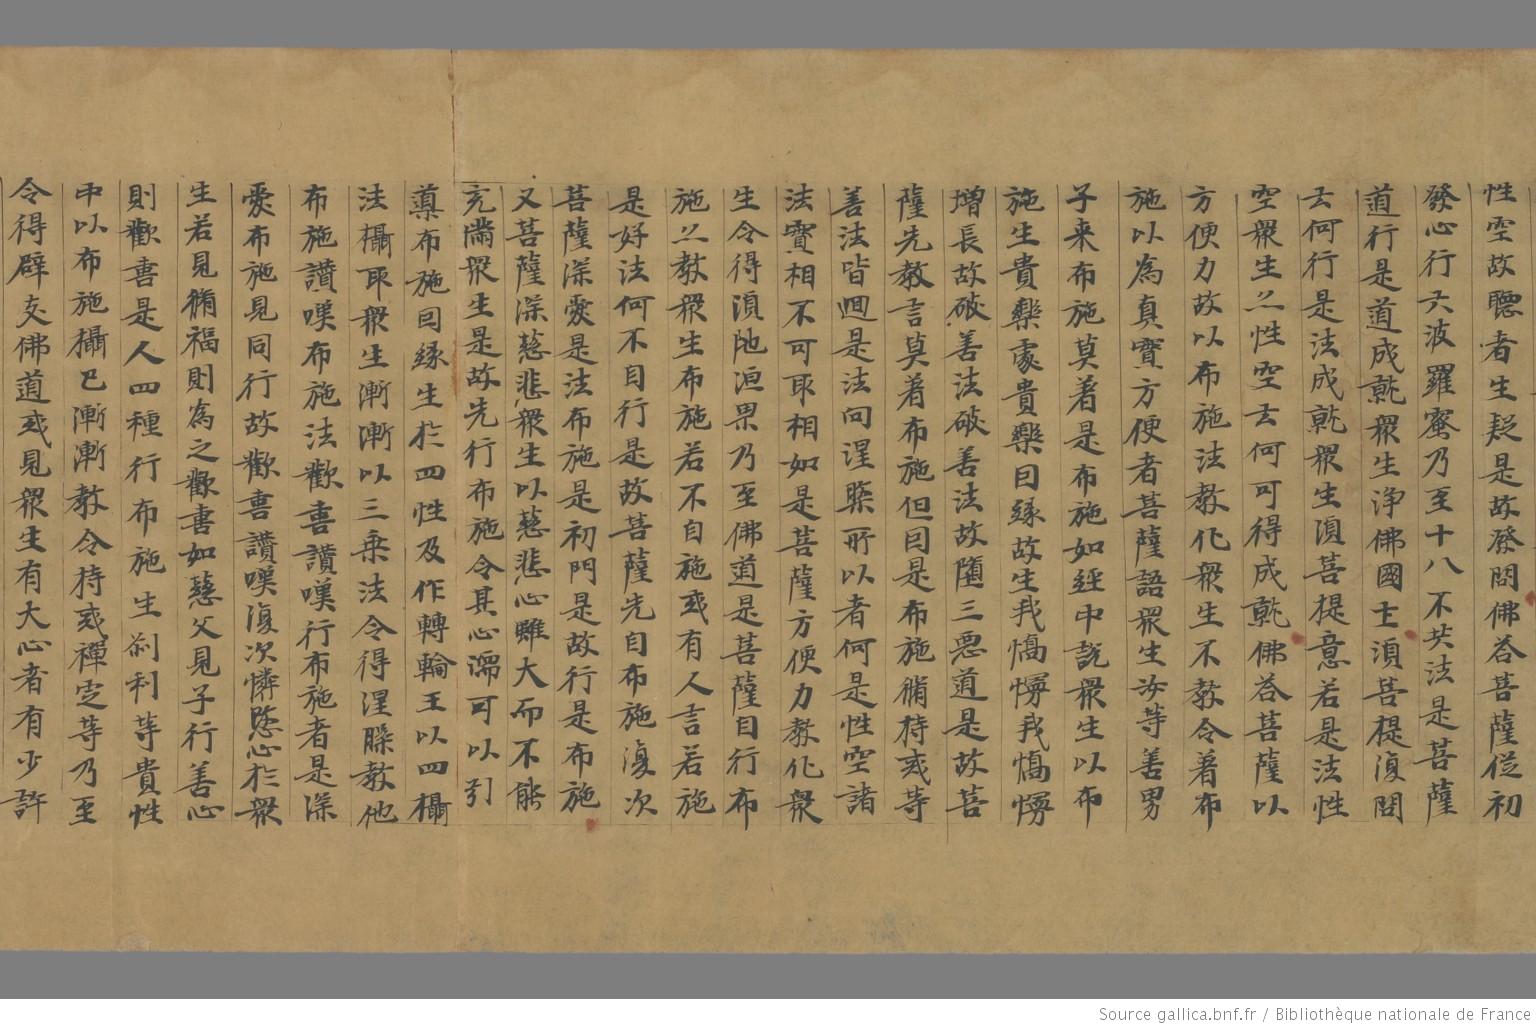 性空故聽者生疑是故發問佛荅菩薩從初
發心行六波羅蜜乃至十八不共法是菩薩
道行是道成就眾生淨佛國土湏菩提復問
云何行是法成就眾生湏菩提意若是法性
空眾生亦性空云何可得成就佛荅菩薩以
方便力故以布施法教化眾生不教令著布
施以為真實方便者菩薩語眾生汝等善男
子來布施莫著是布施如經中說眾生以布
施生貴樂處貴樂因緣故生我憍慢我憍慢
增長故破善法破善法故墮三惡道是故菩
薩先教言莫著布施但因是布施脩持戒等
善法皆迴是法向涅槃所以者何是性空諸
法實相不可取相如是菩薩方便力教化眾
生令得湏陁洹果乃至佛道是菩薩自行布
施亦教眾生布施若不自施或有人言若施
是好法何不自行是故菩薩先自布施復次
菩薩深愛是法布施是初門是故行是布施
又菩薩深慈悲眾生以慈悲心雖大而不能
充滿眾生是故先行布施令其心濡可以引
導布施因緣生於四性及作轉輪王以四攝
法攝取眾生漸漸以三乘法令得涅槃教他
布施讚嘆布施法歡喜讚嘆行布施者是深
愛布施見同行故歡喜讚嘆復次憐愍心於眾
生若見脩福則為之歡喜如慈父見子行善心
則歡喜是人四種行布施生剎利等貴性
中以布施攝已漸漸教令持戒禪定等乃至
令得辟支佛道或見眾生有大心者有少許
Source gallica.bnf.fr / Bibliothèque nationale de France